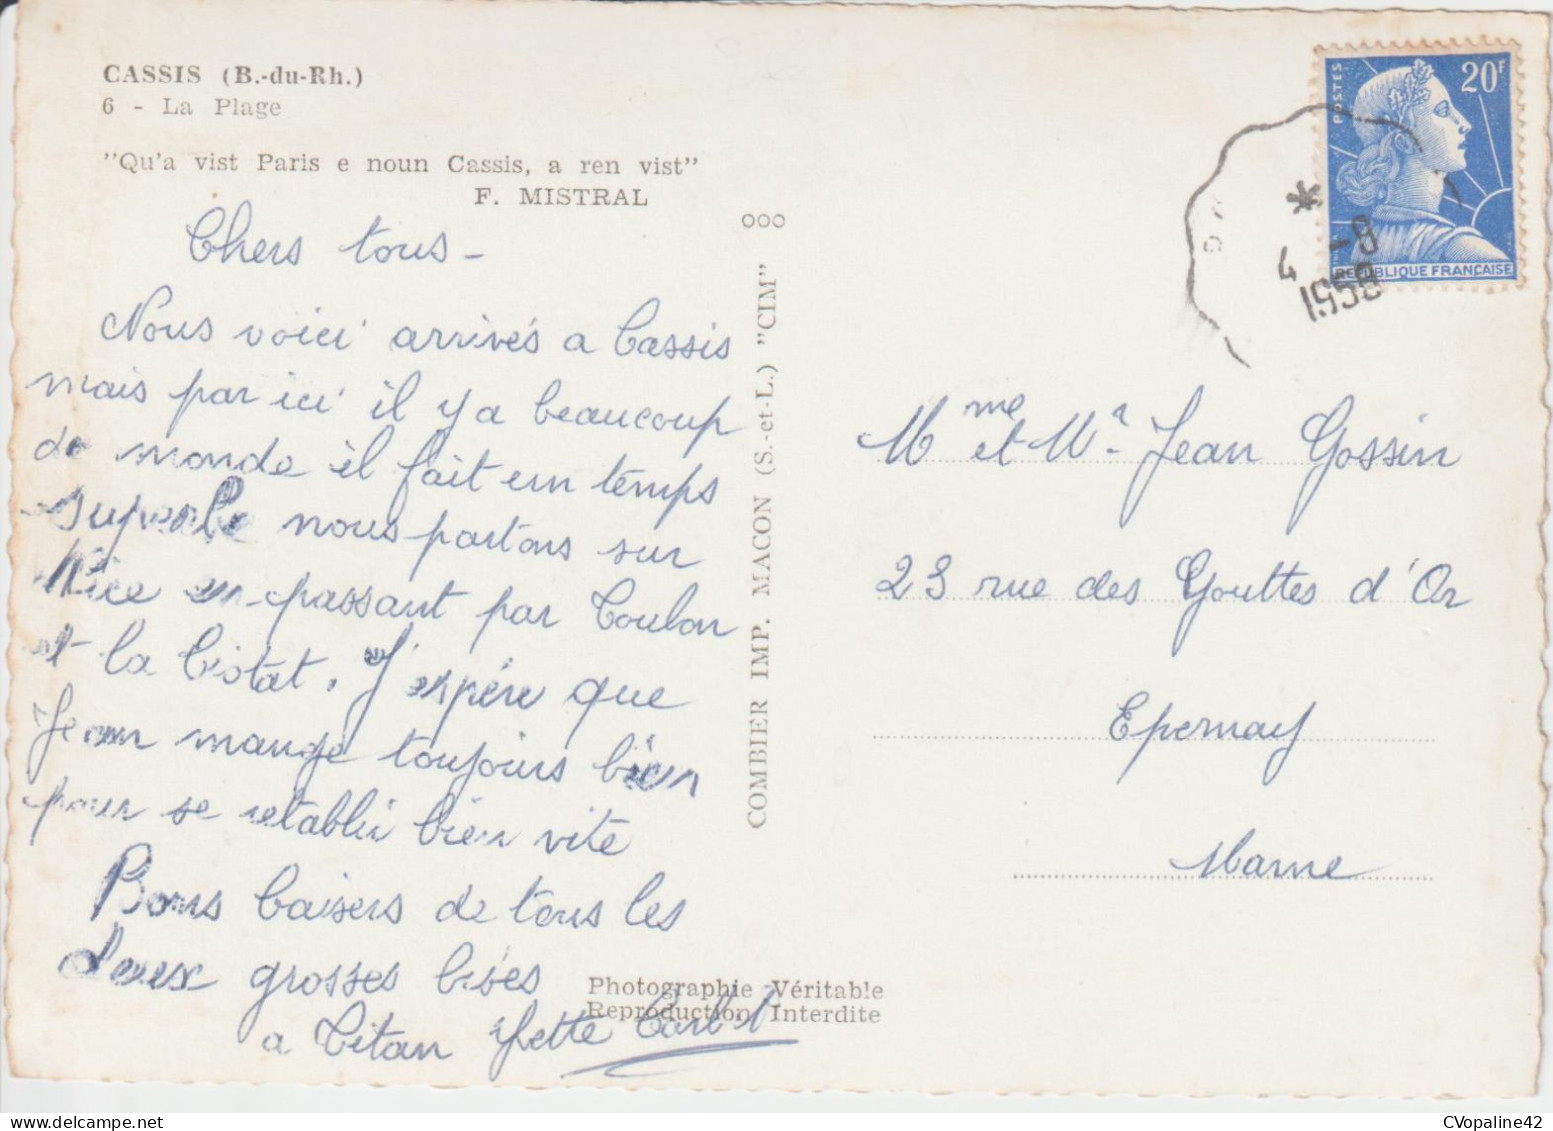 CASSIS (B.-du-Rh.)
6 - La Plage
"Qu'a vist Paris e noun Cassis, a ren vist"
F. MISTRAL
Chers tous -
Nous voici arrivés a Cassis
mais par ici il y a beaucoup
de monde il fait un temps
superbe nous partons sur
Nice en passant par Toulon
et la Ciotat. J'espére que
Jean mange toujours bien
pour se retablir bien vite
Bons baisers de tous les
deux grosses bises
a Titan Yvette
ooo
COMBIER IMP. MACON (S.-et-L.) "CIM"
Photographie Véritable
Reproduction Interdite
POSTES
20F
REPUBLIQUE FRANÇAISE
*
4 -8
1958
Mme et Mr Jean Gossin
23 rue des Gouttes d'Or
Epernay
Marne
CVopaline42